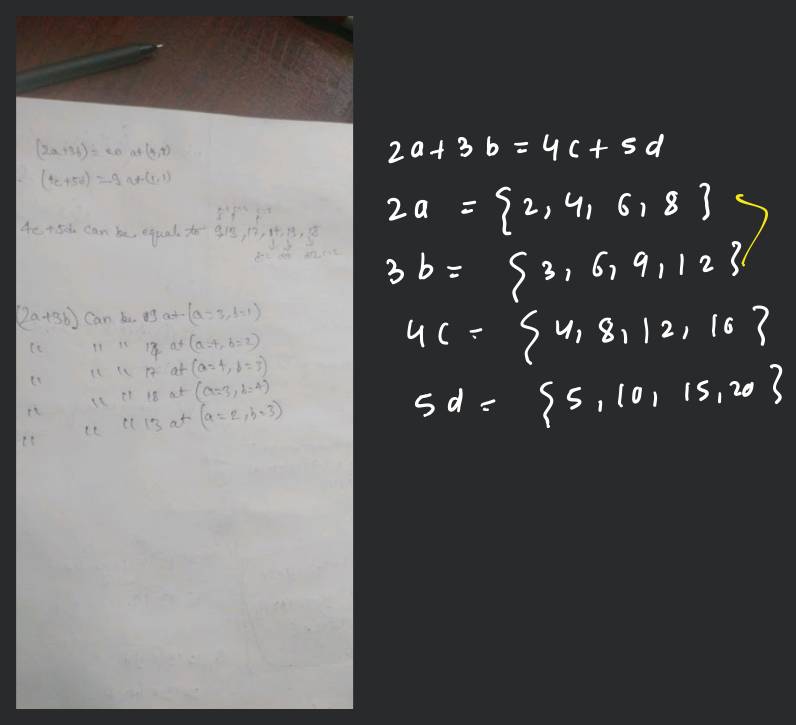 (2a+3b) = 20 at (4,4)
(4c+5d) = 9 at (1,1)
4c+5d can be equal to 9, 13, 17, 14, 19, 18
(2a+3b) can be 9 at (a=3, b=1)
" " " at (a=4, b=2)
" " " 17 at (a=4, b=3)
" " " 18 at (a=3, b=4)
" " " 13 at (a=2, b=3)
2a + 3b = 4c + 5d
2a = {2, 4, 6, 8}
3b = {3, 6, 9, 12}
4c = {4, 8, 12, 16}
5d = {5, 10, 15, 20}